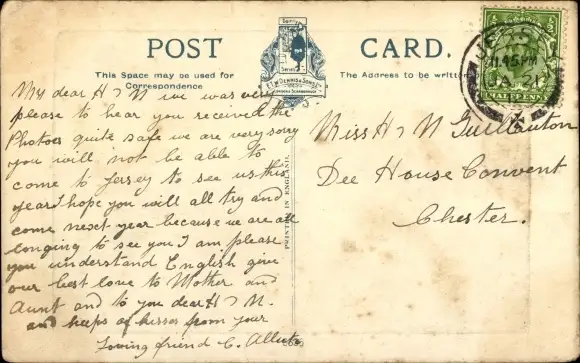 POST CARD.
This Space may be used for
Correspondence
The Address to be written
E.T.W. DENNIS & SONS LTD
LONDON & SCARBOROUGH
PRINTED IN ENGLAND.
JERSEY
11.45 PM
HALF PENNY
My dear H & N we was very
please to hear you received the
Photoes quite safe we are very sorry
you will not be able to
come to Jersey to see us this
year I hope you will all try and
come next year because we are all
longing to see you I am please
you understand English give
our best love to Mother and
Aunt and to you dear H & N.
and heeps of kisses from your
Loving friend C.
Miss H & N
Dee House Convent
Chester.